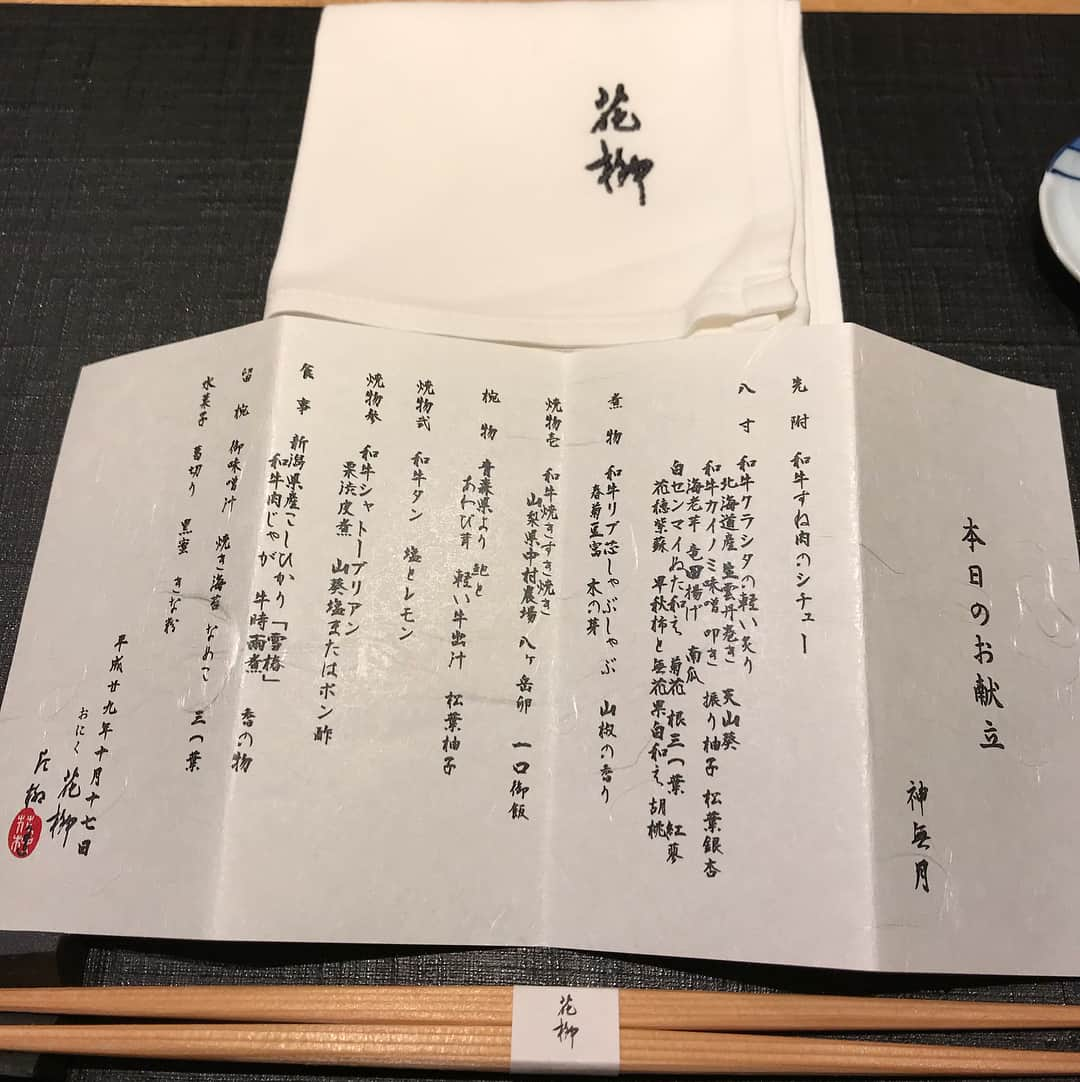 花柳
本日のお献立
神無月
先附 和牛すね肉のシチュー
八寸 和牛クラシタの軽い炙り
北海道産生雲丹巻き 天山葵
和牛カイノミ味噌叩き 振り柚子 松葉銀杏
海老芋 竜田揚げ 南瓜
白センマイぬた和え 菊花 根三つ葉 紅蓼
花穂紫蘇 早秋柿と無花果白和え 胡桃
煮物 和牛リブ芯しゃぶしゃぶ 山椒の香り
春菊豆富 木の芽
焼物壱 和牛焼きすき焼き
山梨県中村農場 八ヶ岳卵 一口御飯
椀物 青森県より 鮑と
あわび茸 軽い牛出汁 松葉柚子
焼物弐 和牛タン 塩とレモン
焼物参 和牛シャトーブリアン
栗渋皮煮 山葵塩またはポン酢
食事 新潟県産こしひかり「雪椿」
和牛肉じゃが 牛時雨煮
留椀 御味噌汁 焼き海苔 なめこ 三つ葉
香の物
水菓子 葛切り 黒蜜 きな粉
平成廿九年十月十七日
おにく 花柳
片柳
花柳